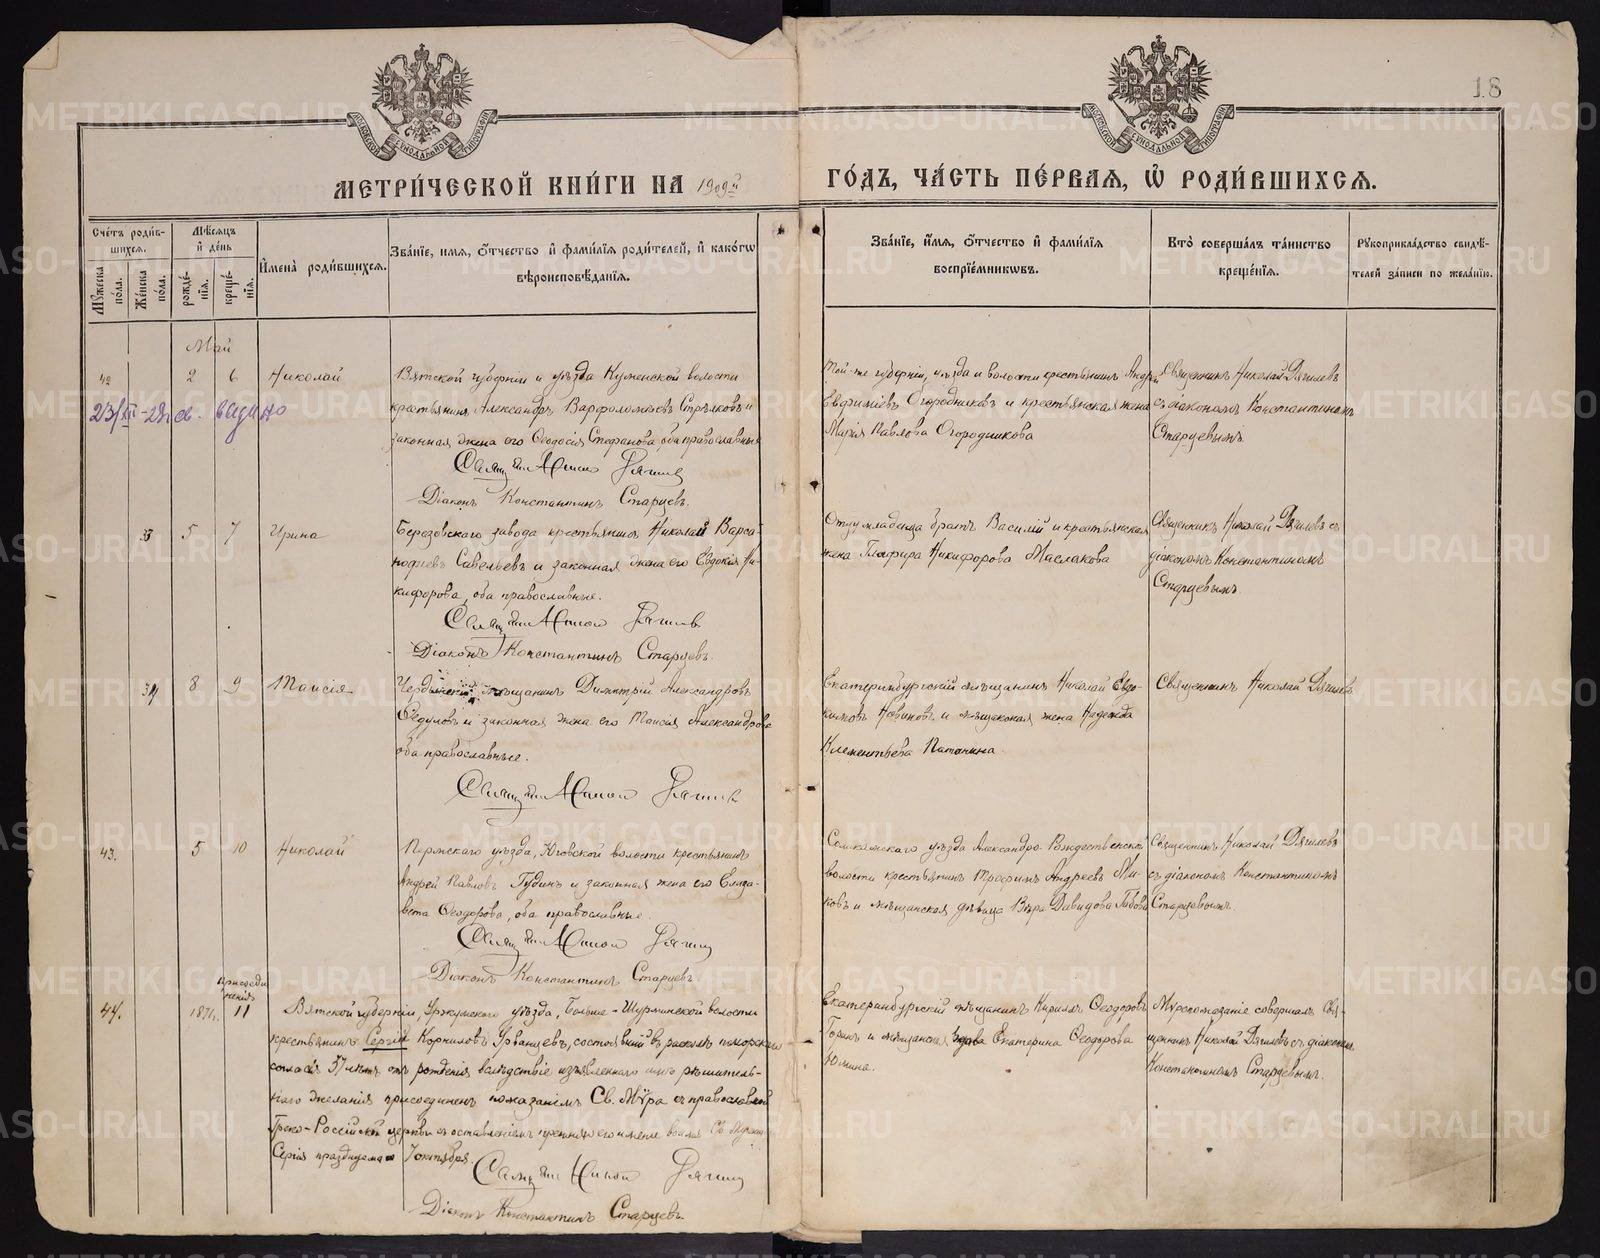 18
МЕТРИ́ЧЕСКОЙ КНИ́ГИ НА 1909й ГО́ДЪ, ЧА́СТЬ ПЕ́РВАЯ, Ѡ҆ РОДИ́ВШИХСЯ.
Сче́тъ роди́в-
шихся.
Му́жеска по́ла.
Же́нска по́ла.
Мѣ́сяцъ
и҆ де́нь
рожде́-
нїя.
креще́-
нїя.
И҆мена̀ роди́вшихся.
Зва́нїе, имя, ѻ҆́тчество и҆ фами́лїя роди́телей, и҆ како́гѡ
вѣроисповѣ́данїя.
Зва́нїе, и҆́мя, ѻ҆́тчество и҆ фами́лїя
воспрїе́мникѡвъ.
Кто̀ соверша́лъ та́инство
креще́нїя.
Рꙋкоприкла́дство свидѣ́-
телей за́писи по жела́нїю.
Май
42 2 6 Николай
Вятской губерніи и уѣзда Куменской волости
крестьянинъ Александръ Варфоломѣевъ Стрѣлковъ и
законная жена его Ѳеодосія Стефанова, оба православные
Діаконъ Константинъ Старцевъ.
Той-же губерніи, уѣзда и волости крестьянинъ Андрей
Евфиміевъ Огородниковъ и крестьянская жена
Марія Павлова Огородникова
Священникъ Николай Дягилевъ
съ діакономъ Константиномъ
Старцевымъ
33 5 7 Ирина
Березовскаго завода крестьянинъ Николай Варса-
нофіевъ Савельевъ и законная жена его Евдокія Ни-
кифорова, оба православные.
Діаконъ Константинъ Старцевъ.
Отцу младенца братъ Василій и крестьянская
жена Глафира Никифорова Маслакова
Священникъ Николай Дягилевъ съ
діакономъ Константиномъ
Старцевымъ
34 8 9 Таисія
Чердынскій мѣщанинъ Димитрій Александровъ
Ѳедуловъ и законная жена его Таисія Александрова
оба православные.
Екатеринбургскій мѣщанинъ Николай Евдо-
кимовъ Новиковъ и мѣщанская жена Надежда
Клементьева Патокина
Священникъ Николай Дягилевъ
43. 5 10 Николай
Пермскаго уѣзда, Юговской волости крестьянинъ
Андрей Павловъ Гудинъ и законная жена его Елиза-
вета Ѳеодорова, оба православные.
Діаконъ Константинъ Старцевъ
Соликамскаго уѣзда Александро-Рождественской
волости крестьянинъ Трофимъ Андреевъ
и мѣщанская дѣвица Вѣра Давидова
Священникъ Николай Дягилевъ
съ діакономъ Константиномъ
Старцевымъ.
присоеди
ненія
44. 11
Вятской губерніи, Уржумскаго уѣзда, Больше-Шурминской волости
крестьянинъ Сергій Корниловъ Урванцевъ, состоявшій въ расколѣ поморскаго
согласія 37 лѣтъ отъ рожденія вслѣдствіе изъявленнаго имъ рѣшитель-
наго желанія присоединенъ помазаніемъ Св. Мѵра съ православной
Греко-Россійской церкви съ оставленіемъ прежняго имени
Сергія празднуема 7 октября.
Діаконъ Константинъ Старцевъ
Екатеринбургскій мѣщанинъ Кириллъ Ѳеодоровъ
и мѣщанская Екатерина Ѳеодорова
Юмина.
Мѵропомазаніе совершалъ Свя-
щенникъ Николай Дягилевъ съ діакономъ
Константиномъ Старцевымъ.